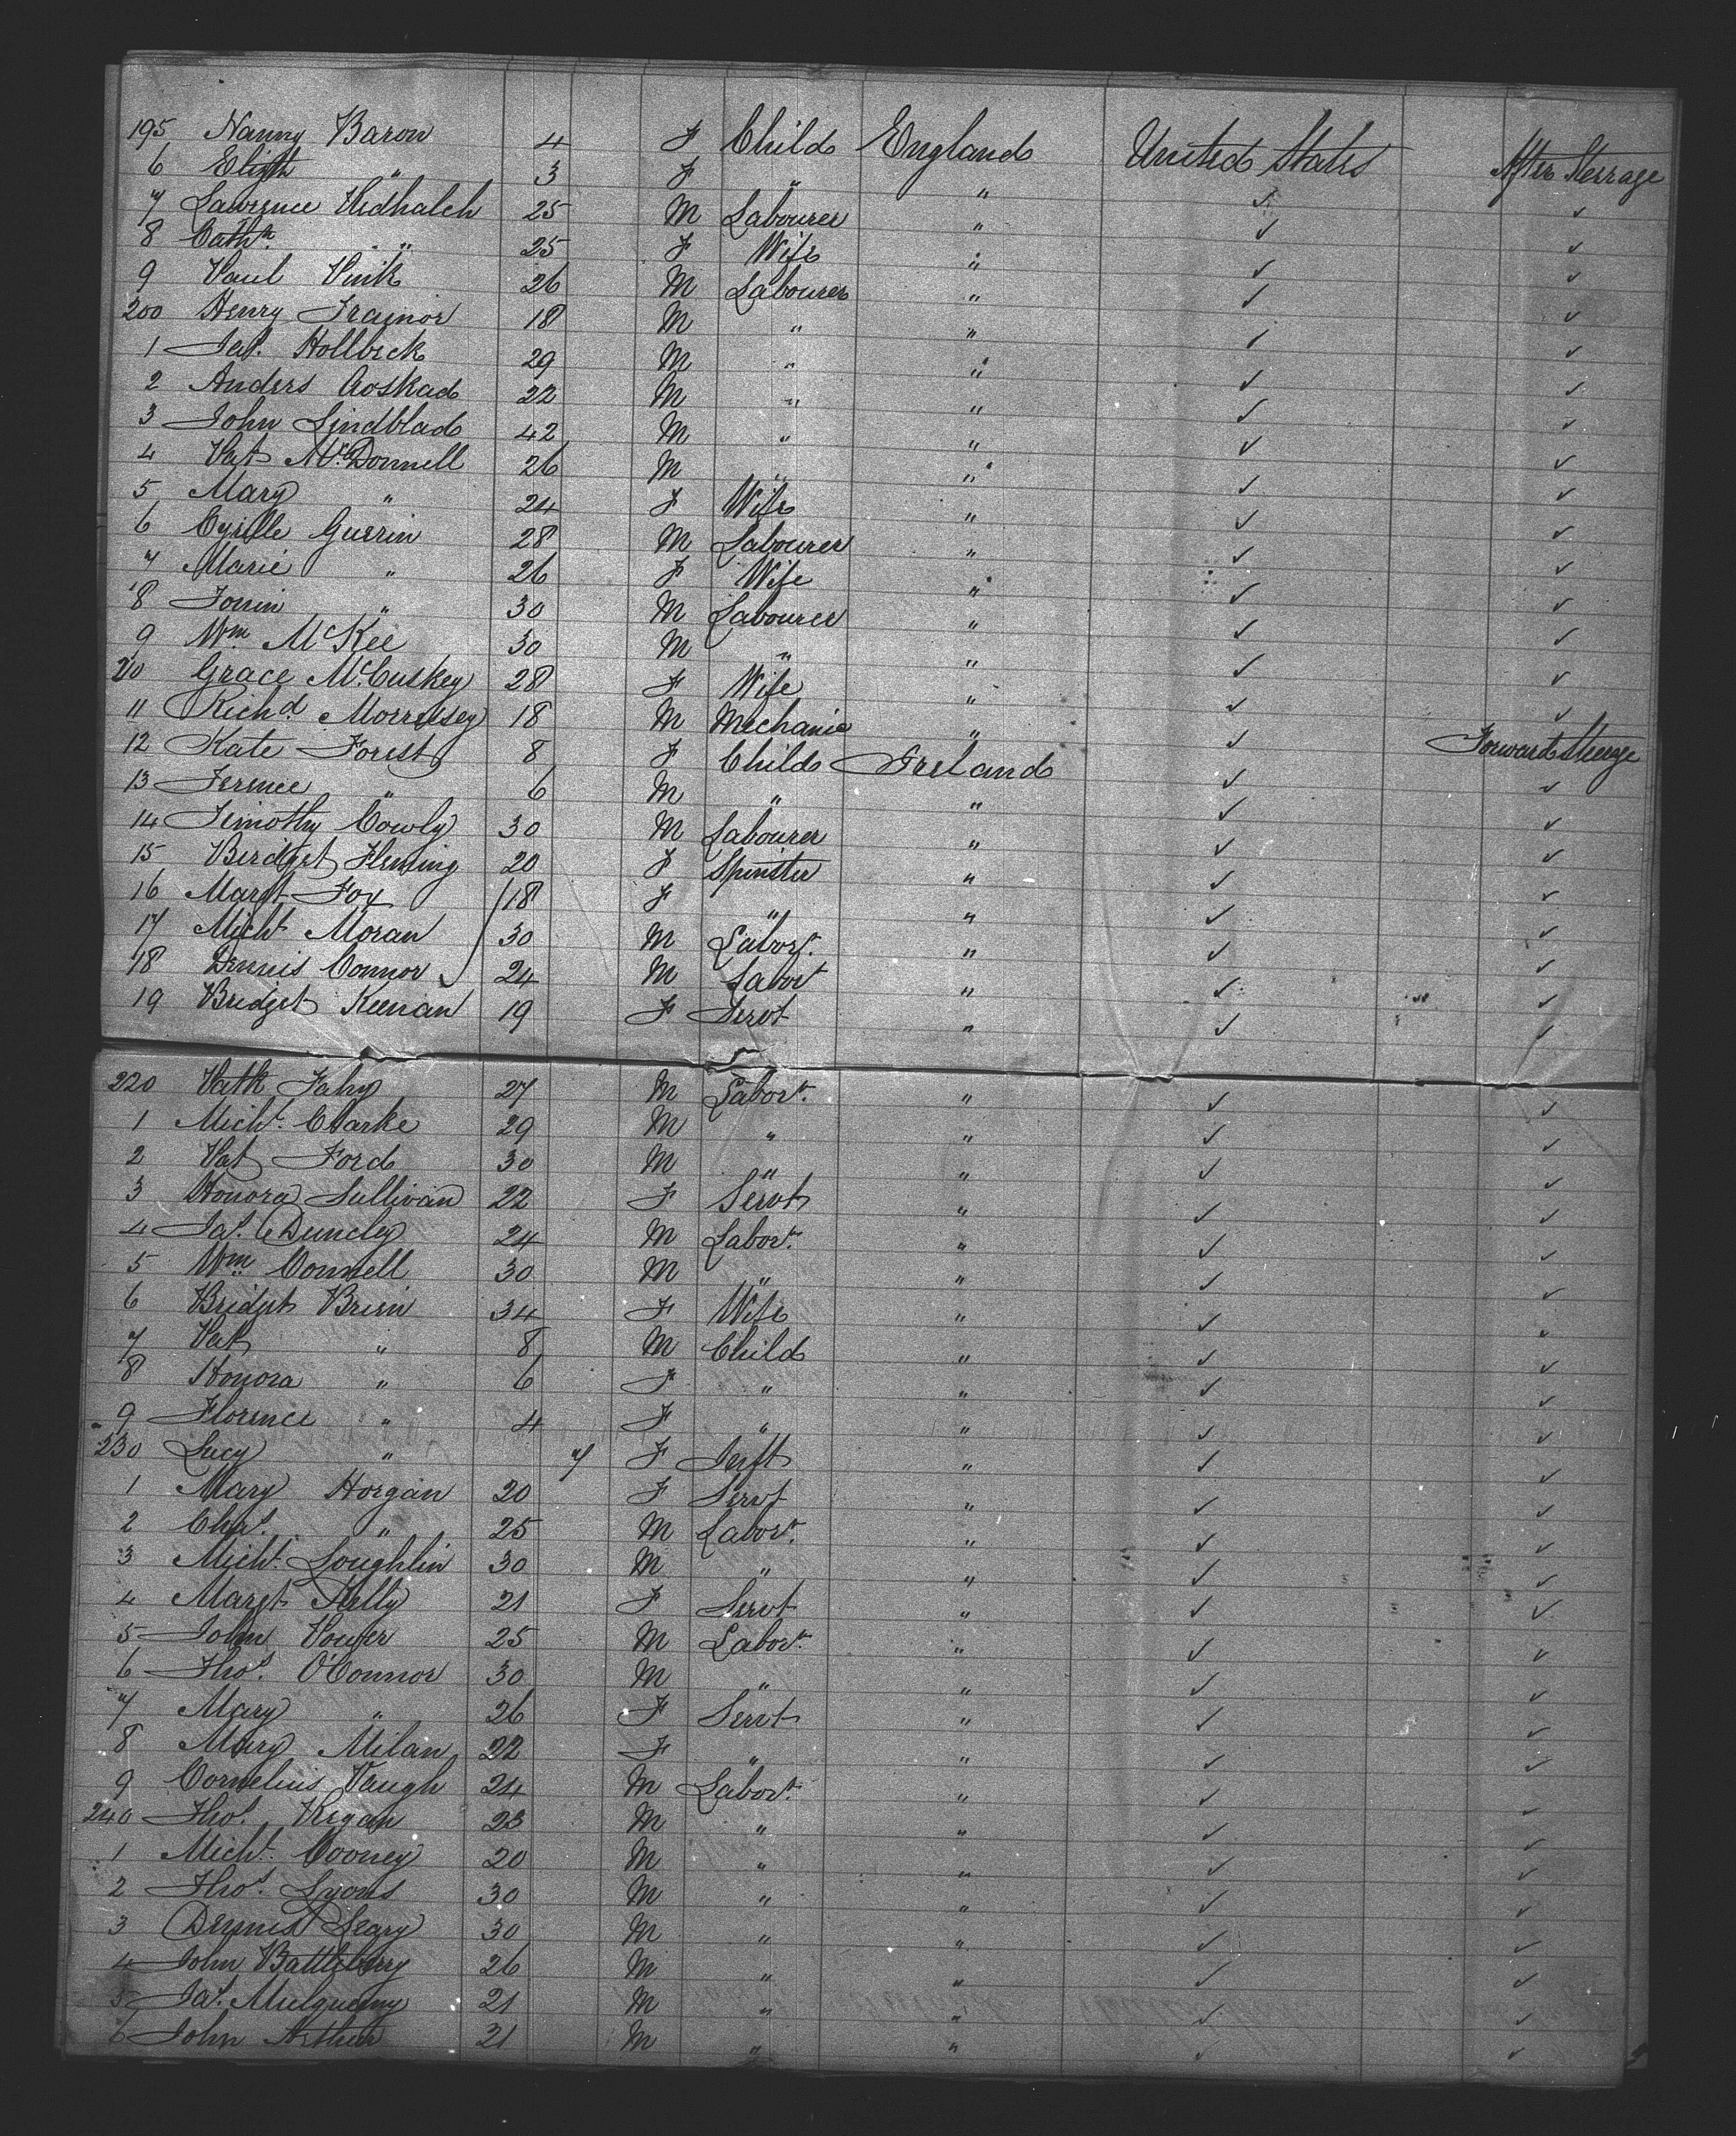 195 Nanny Baron 4 F Child England United States After Sterrage
6 Elizth " 3 F " " ✓ ✓
7 Lawrence Hedhalch 25 M Labourer " ✓ ✓
8 Cathn. " 25 F Wife " ✓ ✓
9 Paul Vink 26 M Labourer " ✓ ✓
200 Henry Trainor 18 M " " ✓ ✓
1 Jas. Hollbeck 29 M " " ✓ ✓
2 Anders Aoskad 22 M " " ✓ ✓
3 John Lindblad 42 M " " ✓ ✓
4 Pat McDonnell 26 M " " ✓ ✓
5 Mary " 24 F Wife " ✓ ✓
6 Cyrille Guerrin 28 M Labourer " ✓ ✓
7 Marie " 26 F Wife " ✓ ✓
8 " 30 M Labourer " ✓ ✓
9 Wm. McKee 30 M " " ✓ ✓
210 Grace McCuskey 28 F Wife " ✓ ✓
11 Richd. Morrissey 18 M Mechanic " ✓ Forward Steerage
12 Kate Forest 8 F Child Ireland ✓ ✓
13 Terence " 6 M " " ✓ ✓
14 Timothy Cowly 30 M Labourer " ✓ ✓
15 Bridget Fleming 20 F Spinster " ✓ ✓
16 Margt. Fox 18 F " " ✓ ✓
17 Michl. Moran 30 M Labor. " ✓ ✓
18 Dennis Connor 24 M Labor " ✓ ✓
19 Bridget Keenan 19 F Servt " ✓ ✓
220 Patk Fahy 27 M Labor. " ✓ ✓
1 Michl. Clarke 29 M " " ✓ ✓
2 Pat Ford 30 M " " ✓ ✓
3 Honora Sullivan 22 F Servt " ✓ ✓
4 Jas. Duncley 24 M Labor. " ✓ ✓
5 Wm Connell 30 M " " ✓ ✓
6 Bridget Brien 34 F Wife " ✓ ✓
7 Pat " 8 M Child " ✓ ✓
8 Honora " 6 F " " ✓ ✓
9 Florence " 4 F " " ✓ ✓
230 Lucy " 7 F Inft " ✓ ✓
1 Mary Horgan 20 F Servt " ✓ ✓
2 Chas. " 25 M Labor. " ✓ ✓
3 Michl. Loughlin 30 M " " ✓ ✓
4 Margt Kelly 21 F Servt " ✓ ✓
5 John Power 25 M Labor. " ✓ ✓
6 Thos. O'Connor 30 M " " ✓ ✓
7 Mary " 26 F Servt " ✓ ✓
8 Mary Milan 22 F " " ✓ ✓
9 Cornelius Vaugh 24 M Labor. " ✓ ✓
240 Thos. Kegan 23 M " " ✓ ✓
1 Michl. Cooney 20 M " " ✓ ✓
2 Thos. Lyons 30 M " " ✓ ✓
3 Dennis Leary 30 M " " ✓ ✓
4 John Battlebury 26 M " " ✓ ✓
5 Jas. Mulqueeny 21 M " " ✓ ✓
6 John Arthur 21 M " " ✓ ✓